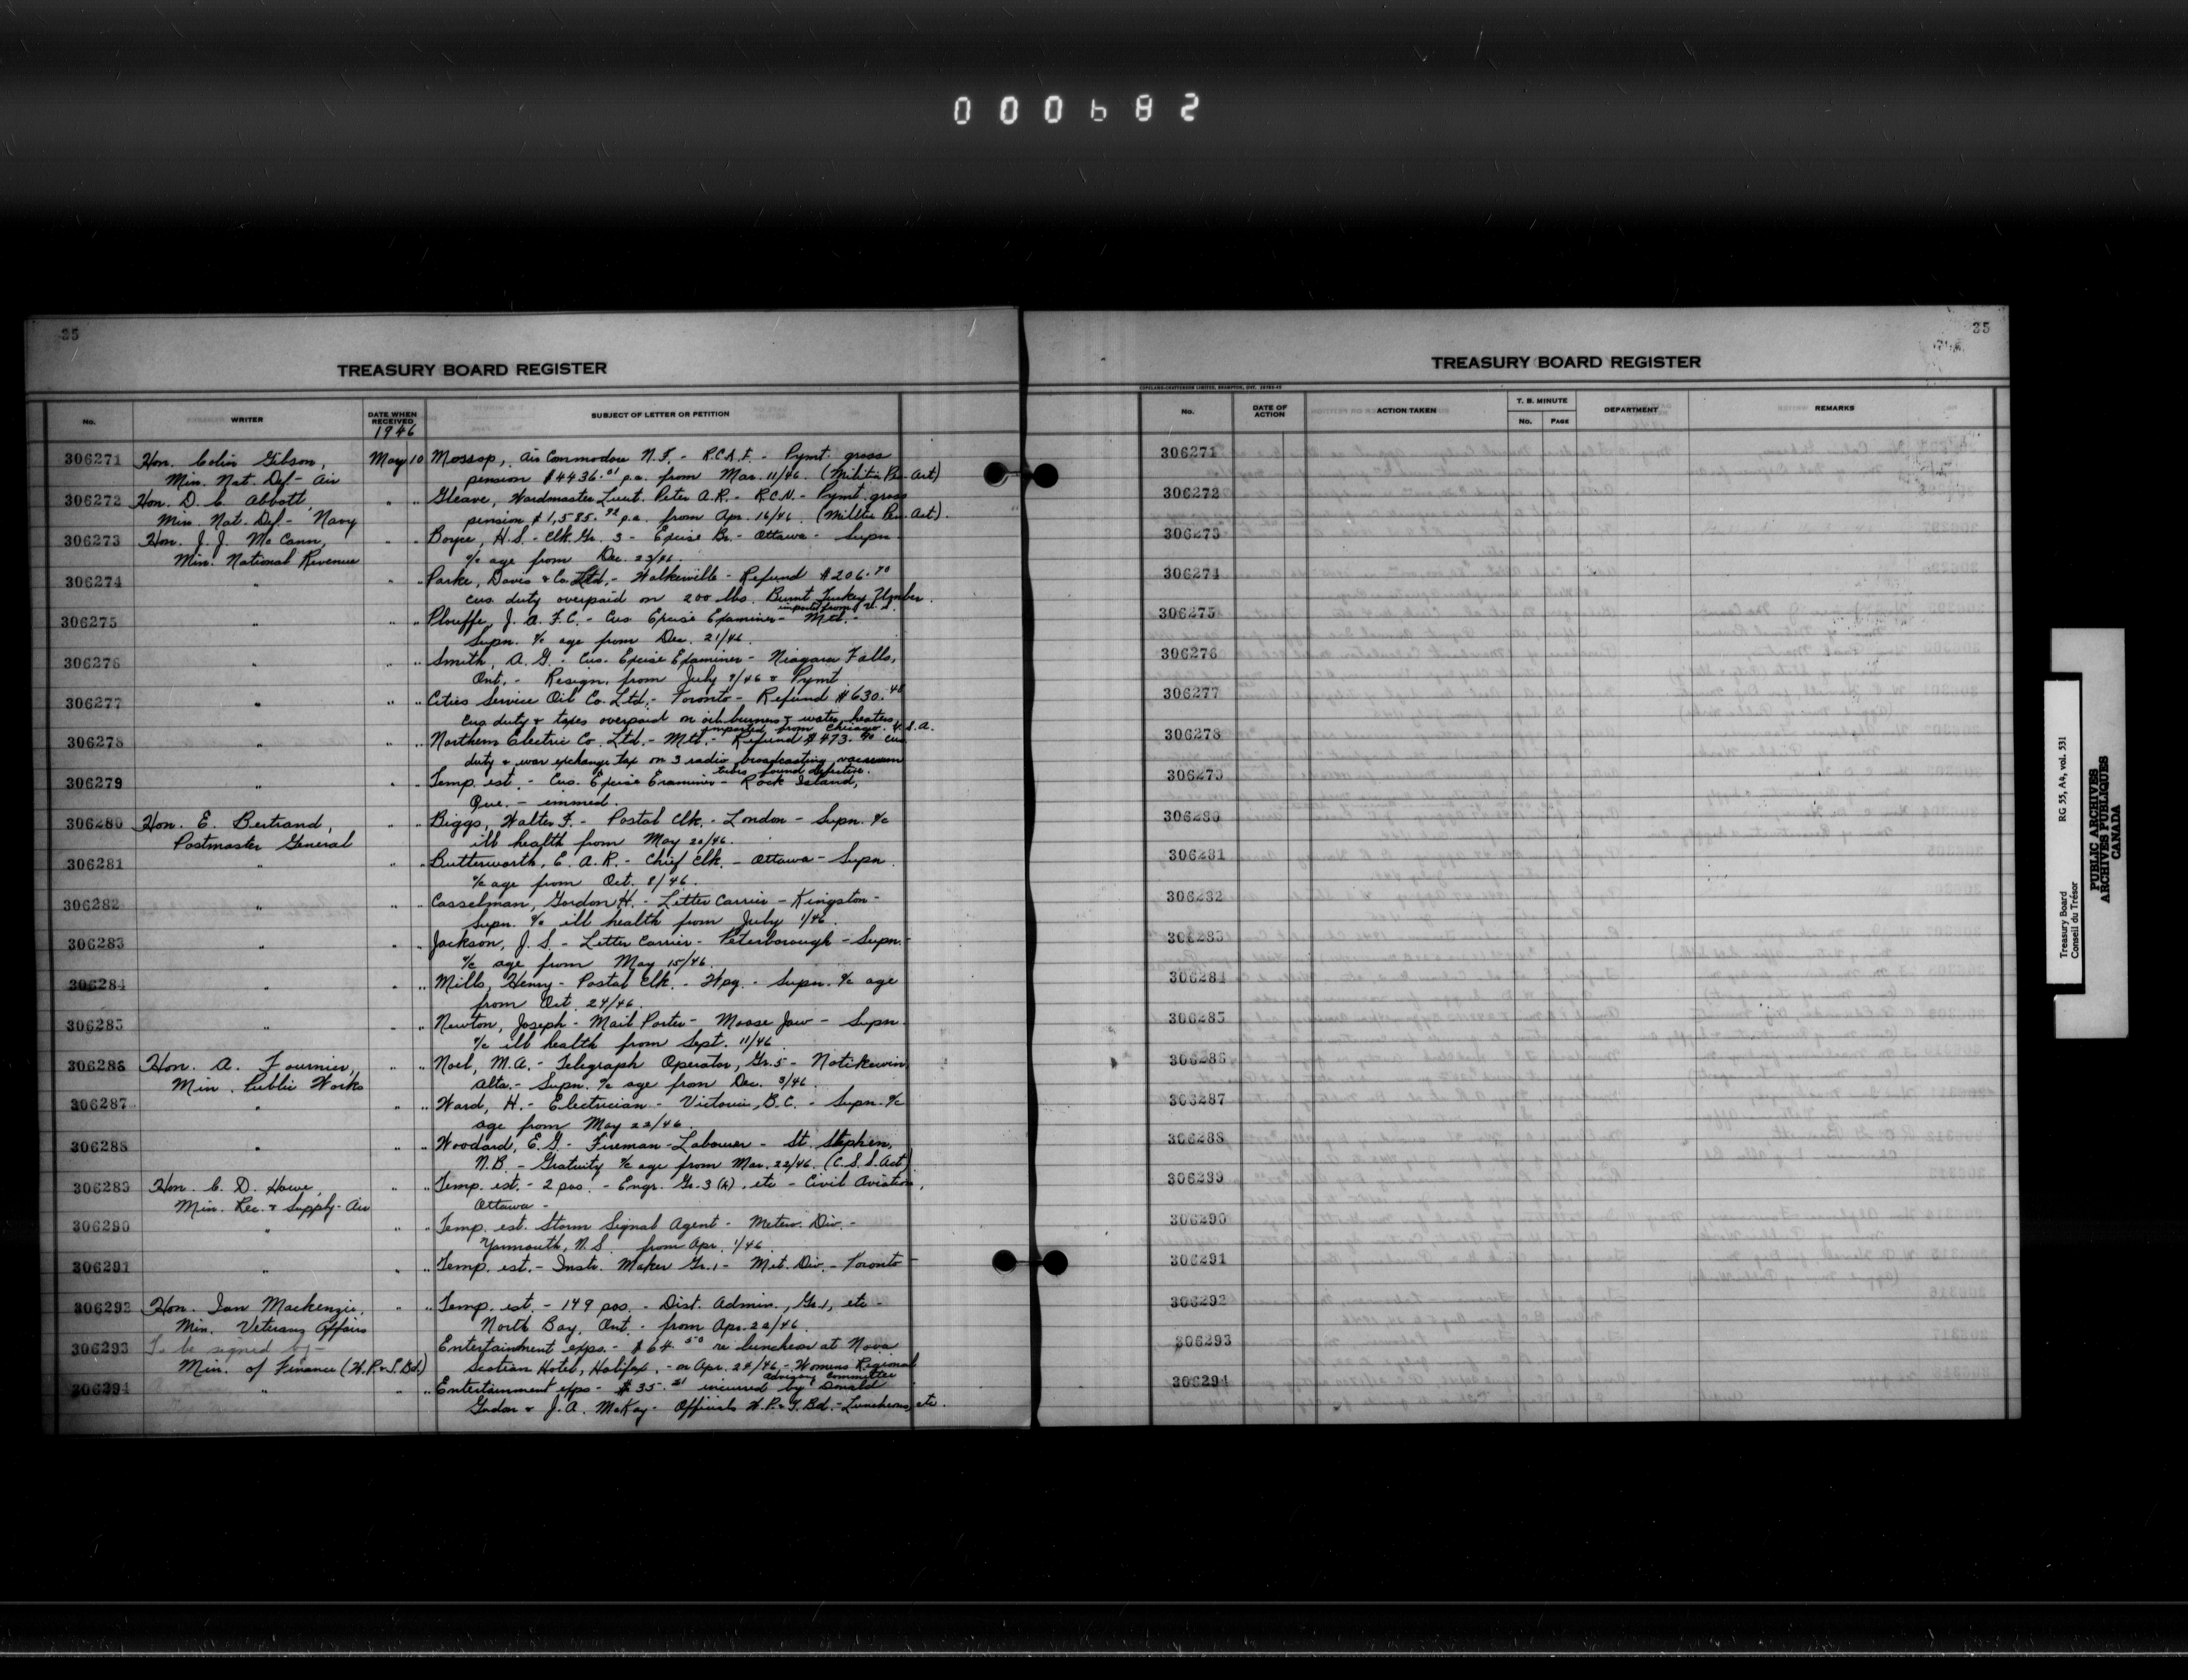 000682
35
TREASURY BOARD REGISTER
No. WRITER DATE WHEN RECEIVED SUBJECT OF LETTER OR PETITION
1946
306271 Hon. Colin Gibson, May 10 Mossop, Air Commodore N.F. - R.C.A.F. - Pymt. gross
Min. Nat. Def - Air pension $4436.01 p.a. from Mar. 11/46. (Militia Pen. Act)
306272 Hon. D. C. Abbott, " " Gleave, Wardmaster Lieut. Peter A.R. - R.C.N. - Pymt. gross
Min. Nat. Def. - Navy pension $1,585.92 p.a. from Apr. 16/46. (Militia Pen. Act).
306273 Hon. J. J. McCann, " " Boyce, H.S. - Clk. Gr. 3 - Excise Br. - Ottawa - Supn.
Min. National Revenue a/c age from Dec. 23/46.
306274 " " " Parke, Davis & Co. Ltd. - Walkerville - Refund $206.70
cus. duty overpaid on 200 lbs. Burnt Turkey Umber.
imported from U.S.
306275 " " " Plouffe, J. A. F. C. - Cus Excise Examiner - Mtl. -
Supn. a/c age from Dec. 21/46.
306276 " " " Smith, A. G. - Cus. Excise Examiner - Niagara Falls,
Ont. - Resign. from July 9/46 & Pymt
306277 " " " Cities Service Oil Co. Ltd. - Toronto - Refund $630.48
Cus. duty & taxes overpaid on oil burners & water heaters
imported from Chicago. U.S.A.
306278 " " " Northern Electric Co. Ltd. - Mtl. - Refund $473.90 cus.
duty & war exchange tax on 3 radio broadcasting vacuum
tubes found defective.
306279 " " " Temp. est. - Cus. Excise Examiner - Rock Island,
Que. - immed.
306280 Hon. E. Bertrand, " " Biggs, Walter F. - Postal Clk. - London - Supn. a/c
Postmaster General ill health from May 20/46.
306281 " " " Butterworth, E. A. R. - Chief Clk. - Ottawa - Supn.
a/c age from Oct. 8/46.
306282 " " " Casselman, Gordon H. - Letter Carrier - Kingston -
Supn. a/c ill health from July 1/46.
306283 " " " Jackson, J. S. - Letter Carrier - Peterborough - Supn. -
a/c age from May 15/46.
306284 " " " Mills, Henry - Postal Clk. - Wpg. - Supn. a/c age
from Oct. 24/46.
306285 " " " Newton, Joseph - Mail Porter - Moose Jaw - Supn.
a/c ill health from Sept. 11/46.
306286 Hon. A. Fournier, " " Noel, M.A. - Telegraph Operator, Gr. 5 - Notikewin,
Min. Public Works Alta. - Supn. a/c age from Dec. 3/46.
306287 " " " Ward, H. - Electrician - Victoria, B.C. - Supn. a/c
age from May 22/46.
306288 " " " Woodard, E.G. - Fireman-Labourer - St. Stephen,
N.B. - Gratuity a/c age from Mar. 22/46. (C.S.S. Act)
306289 Hon. C. D. Howe, " " Temp. est. - 2 pos. - Engr. Gr. 3 (A), etc - Civil Aviation,
Min. Rec. & Supply - Air Ottawa -
306290 " " " Temp. est. Storm Signal Agent - Meteor. Div. -
Yarmouth, N.S. from Apr. 1/46.
306291 " " " Temp. est. - Instr. Maker Gr. 1 - Met. Div. - Toronto
306292 Hon. Ian Mackenzie, " " Temp. est. - 149 pos. - Dist. Admin., Gr. 1, etc -
Min. Veterans Affairs North Bay, Ont. - from Apr. 22/46.
306293 To be signed by - Entertainment exps. - $64.50 re luncheon at Nova
Min. of Finance (W.P. & T. Bd.) Scotian Hotel, Halifax, - on Apr. 24/46 - Womens Regional
Advisory Committee
306294 " " " Entertainment exps - $35.21 incurred by Donald
Gordon & J. A. McKay - Officials W.P. & T. Bd. - Luncheons, etc.
35
TREASURY BOARD REGISTER
COPELAND-CHATTERSON LIMITED, BRAMPTON, ONT.
No. DATE OF ACTION ACTION TAKEN T. B. MINUTE No. PAGE DEPARTMENT REMARKS
306271
306272
306273
306274
306275
306276
306277
306278
306279
306280
306281
306282
306283
306284
306285
306286
306287
306288
306289
306290
306291
306292
306293
306294
Treasury Board RG 55, A4, vol. 531
Conseil du Trésor
PUBLIC ARCHIVES
ARCHIVES PUBLIQUES
CANADA